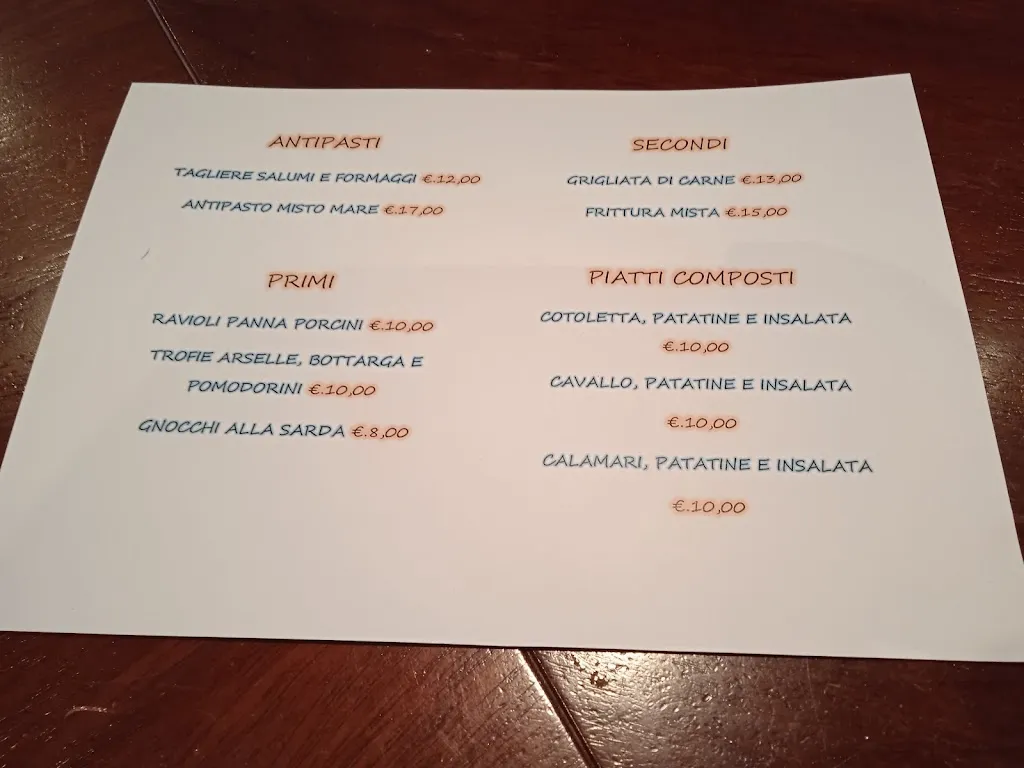 ANTIPASTI
TAGLIERE SALUMI E FORMAGGI €.12,00
ANTIPASTO MISTO MARE €.17,00
PRIMI
RAVIOLI PANNA PORCINI €.10,00
TROFIE ARSELLE, BOTTARGA E
POMODORINI €.10,00
GNOCCHI ALLA SARDA €.8,00
SECONDI
GRIGLIATA DI CARNE €.13,00
FRITTURA MISTA €.15,00
PIATTI COMPOSTI
COTOLETTA, PATATINE E INSALATA
€.10,00
CAVALLO, PATATINE E INSALATA
€.10,00
CALAMARI, PATATINE E INSALATA
€.10,00